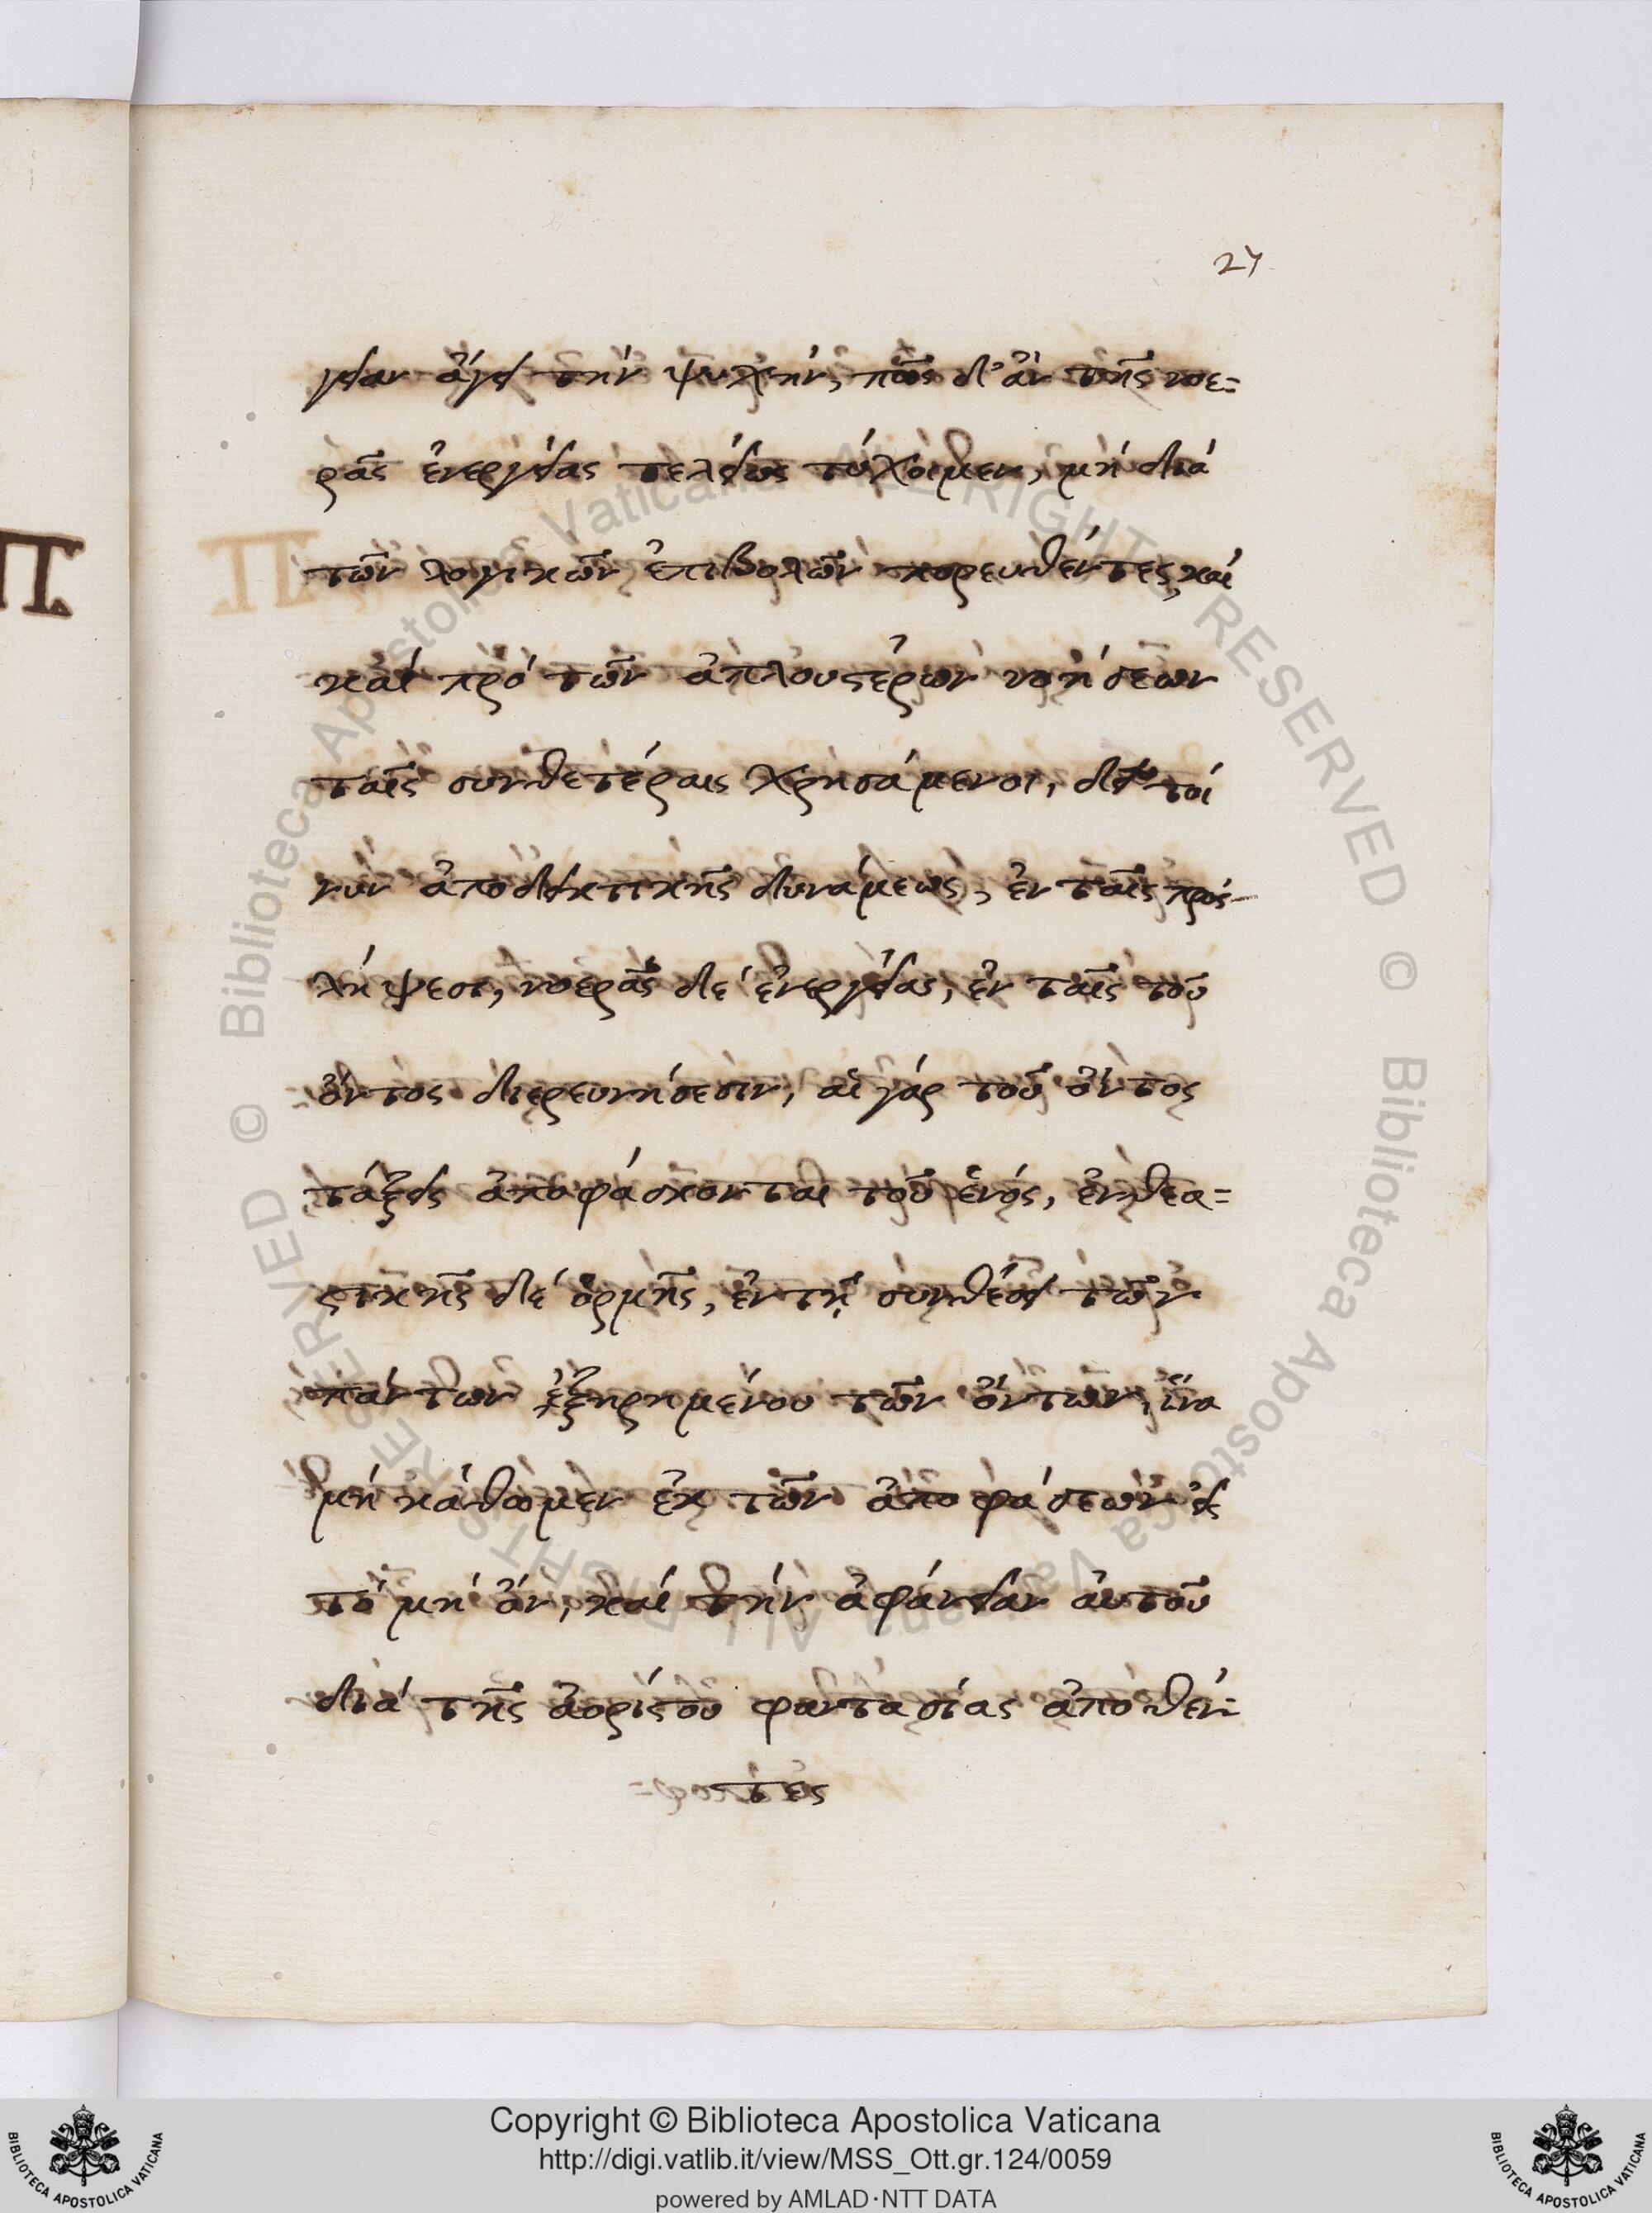 27
γείαν ἄγει τὴν ψυχὴν, πῶς δ' ἂν τῆς νοε=
ρᾶς ἐνεργείας τελείως τύχοιμεν, μὴ διὰ
τῶν λογικῶν ἐπιβολῶν πορευθέντες καὶ
καὶ πρὸ τῶν ἁπλουστέρων νοήσεων
ταῖς συνθετέραις χρησάμενοι, δεῖ τοί
νυν ἀποδεικτικῆς δυνάμεως, ἐν ταῖς προς-
λήψεσι, νοερᾶς δὲ ἐνεργείας, ἐν ταῖς τοῦ
ὄντος διερευνήσεσιν, αἱ γὰρ τοῦ ὄντος
τάξεις ἀποφάσκονται τοῦ ἑνός, ἐνθεα=
στικῆς δὲ ὁρμῆς, ἐν τῇ συνθέσει τῶν
πάντων ἐξῃρημένου τῶν ὄντων, ἵνα
μὴ κάθωμεν ἐκ τῶν ἀποφάσεων εἰς
τὸ μὴ ὂν, καὶ τὴν ἀφάνειαν αὐτοῦ
διὰ τῆς ἀορίστου φαντασίας ἀποθέν=
τες
Π
© Biblioteca Apostolica Vaticana ALL RIGHTS RESERVED © Biblioteca Apostolica Vaticana ALL RIGHTS RESERVED
BIBLIOTECA APOSTOLICA VATICANA
Copyright © Biblioteca Apostolica Vaticana
http://digi.vatlib.it/view/MSS_Ott.gr.124/0059
powered by AMLAD·NTT DATA
BIBLIOTECA APOSTOLICA VATICANA